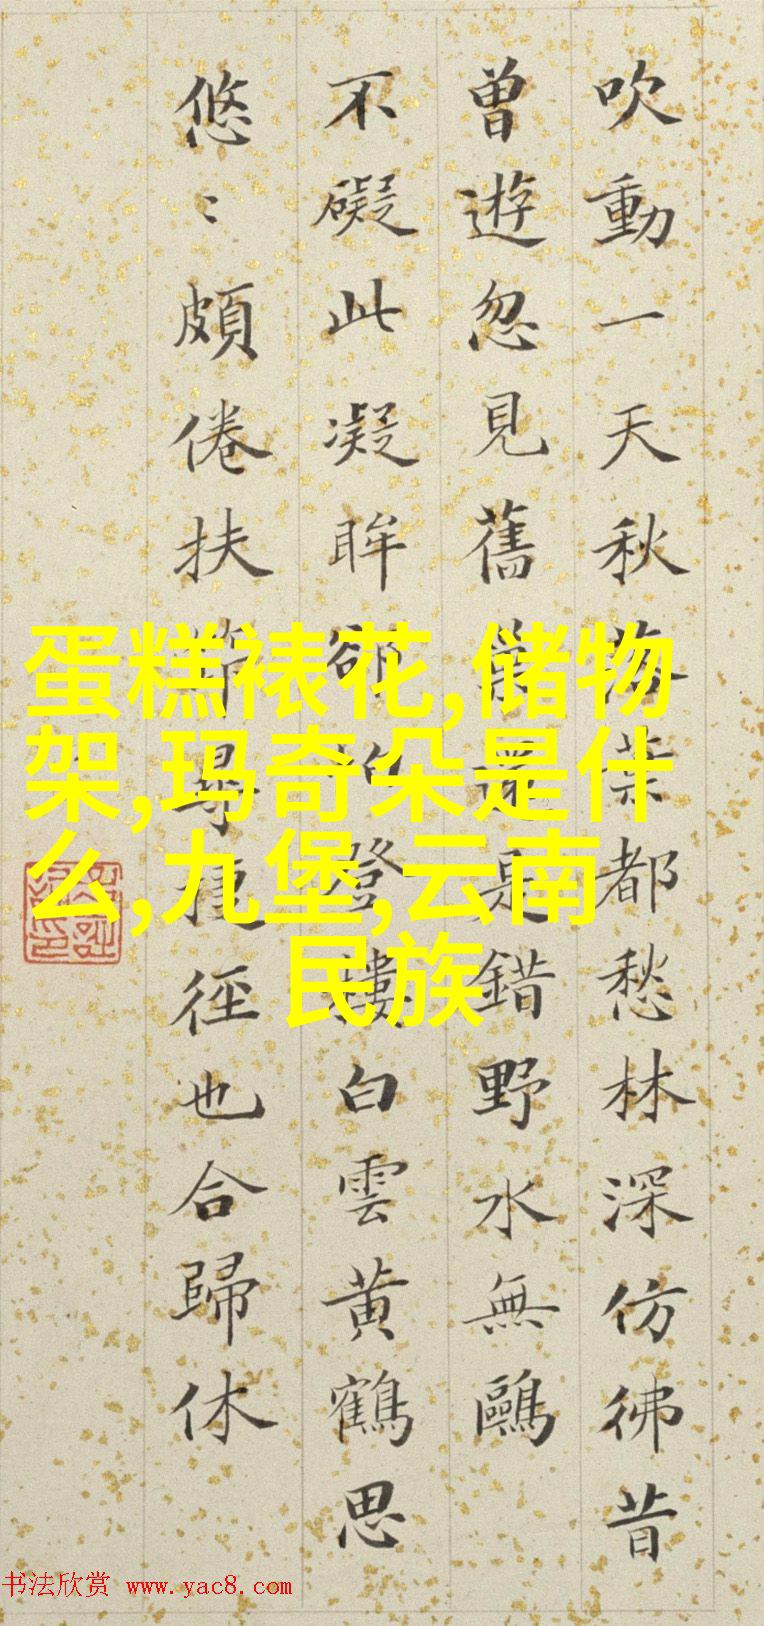 吹動一天秋落葉都愁林深仿彿昔
曾遊忽見舊還是錯野水無鷗
不礙此凝眸卻怕登樓白雲黄鶴思
悠〻頗倦扶筇尋捷徑也合歸休
蛋糕裱花,储物
架,玛奇朵是什
么,九堡,云南
民族
书法欣赏 www.yac8.com